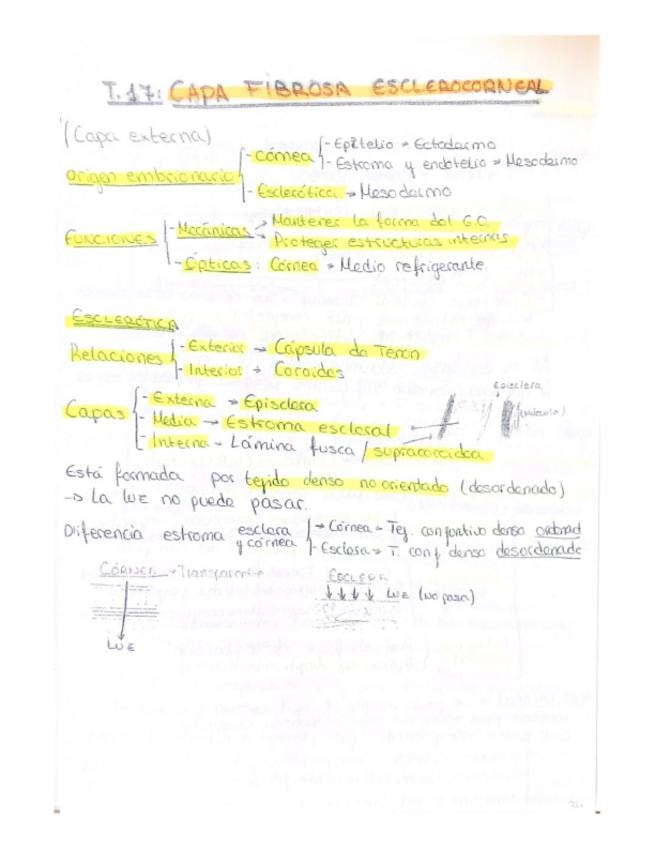 T.17: CAPA FIBROSA ESCLEROCORNEAL
(Capa externa)
Origen embrionario
- Córnea
- Epitelio → Ectodermo
- Estroma y endotelio → Mesodermo
- Esclerótica → Mesodermo
FUNCIONES
- Mecánicas
→ Mantener la forma del G.O.
→ Proteger estructuras internas
- Ópticas: Córnea → Medio refrigerante.
ESCLERÓTICA
Relaciones
- Exterior → Cápsula de Tenon
- Interior → Coroides
Capas
- Externa → Episclera
- Media → Estroma escleral
- Interna → Lámina fusca / supracoroidea
Episclera
(músculo)
Está formada por tejido denso no orientado (desordenado)
→ La luz no puede pasar.
Diferencia estroma esclera y córnea
→ Córnea → Tej. conjontivo denso ordenad
- Esclera → T. conj denso desordenado
CÓRNEA → Transparente
LUZ
ESCLERA
LUZ (No pasa)